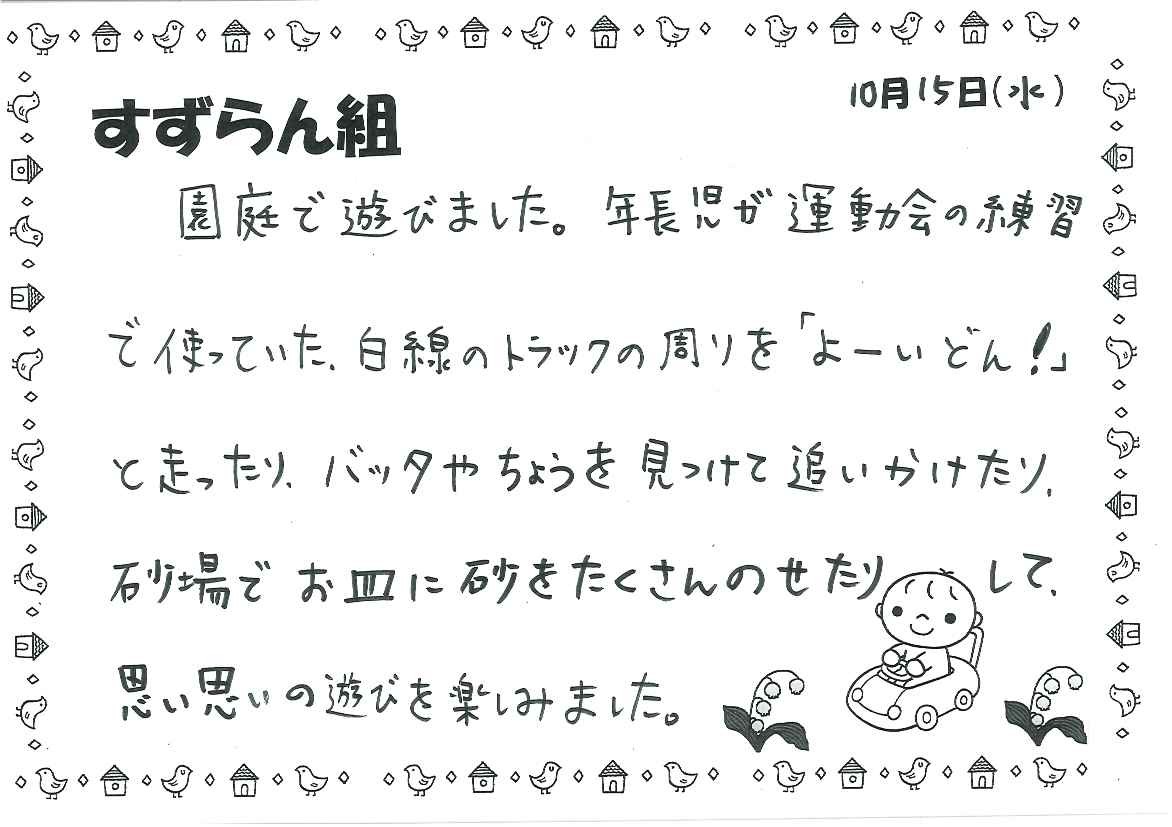 10月15日(水)
すずらん組
園庭で遊びました。年長児が運動会の練習
で使っていた、白線のトラックの周りを「よーいどん!」
と走ったり、バッタやちょうを見つけて追いかけたり、
砂場でお皿に砂をたくさんのせたりして、
思い思いの遊びを楽しみました。